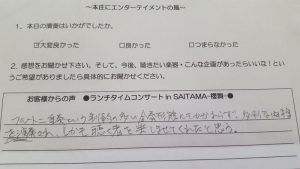 ～本庄にエンターテイメントの風～
1．本日の演奏はいかがでしたか。
☑大変良かった　□良かった　□つまらなかった
2．感想をお聞かせ下さい。そして、今後、聴きたい楽器・こんな企画があったらいいな！という
ご希望がありましたら具体的にお聞かせください。
お客様からの声　●ランチタイムコンサート in SAITAMA-
フルート二重奏という制約の多い合奏形態にもかかわらず、
を演奏され、しかも聴く者を楽しませてくれたと思う。